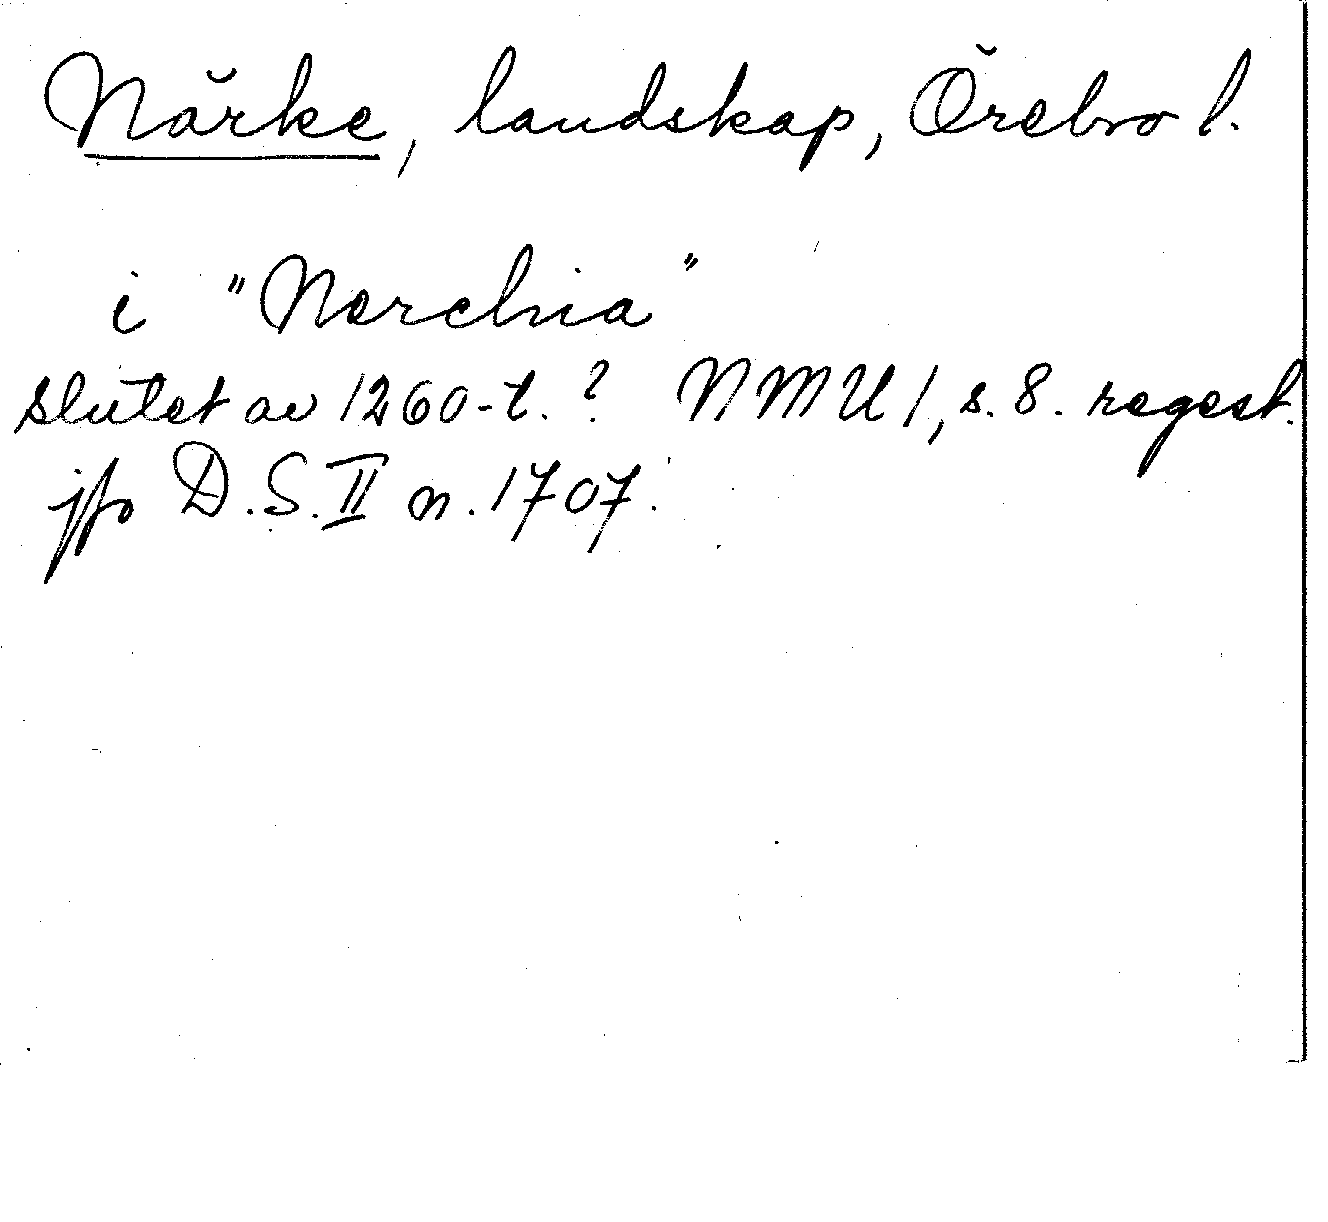 Närke, landskap, Örebro l.
i "Nerchia"
slutet av 1260-t. ? NMU 1, s. 8. regest.
jfr D.S. II n. 1707.